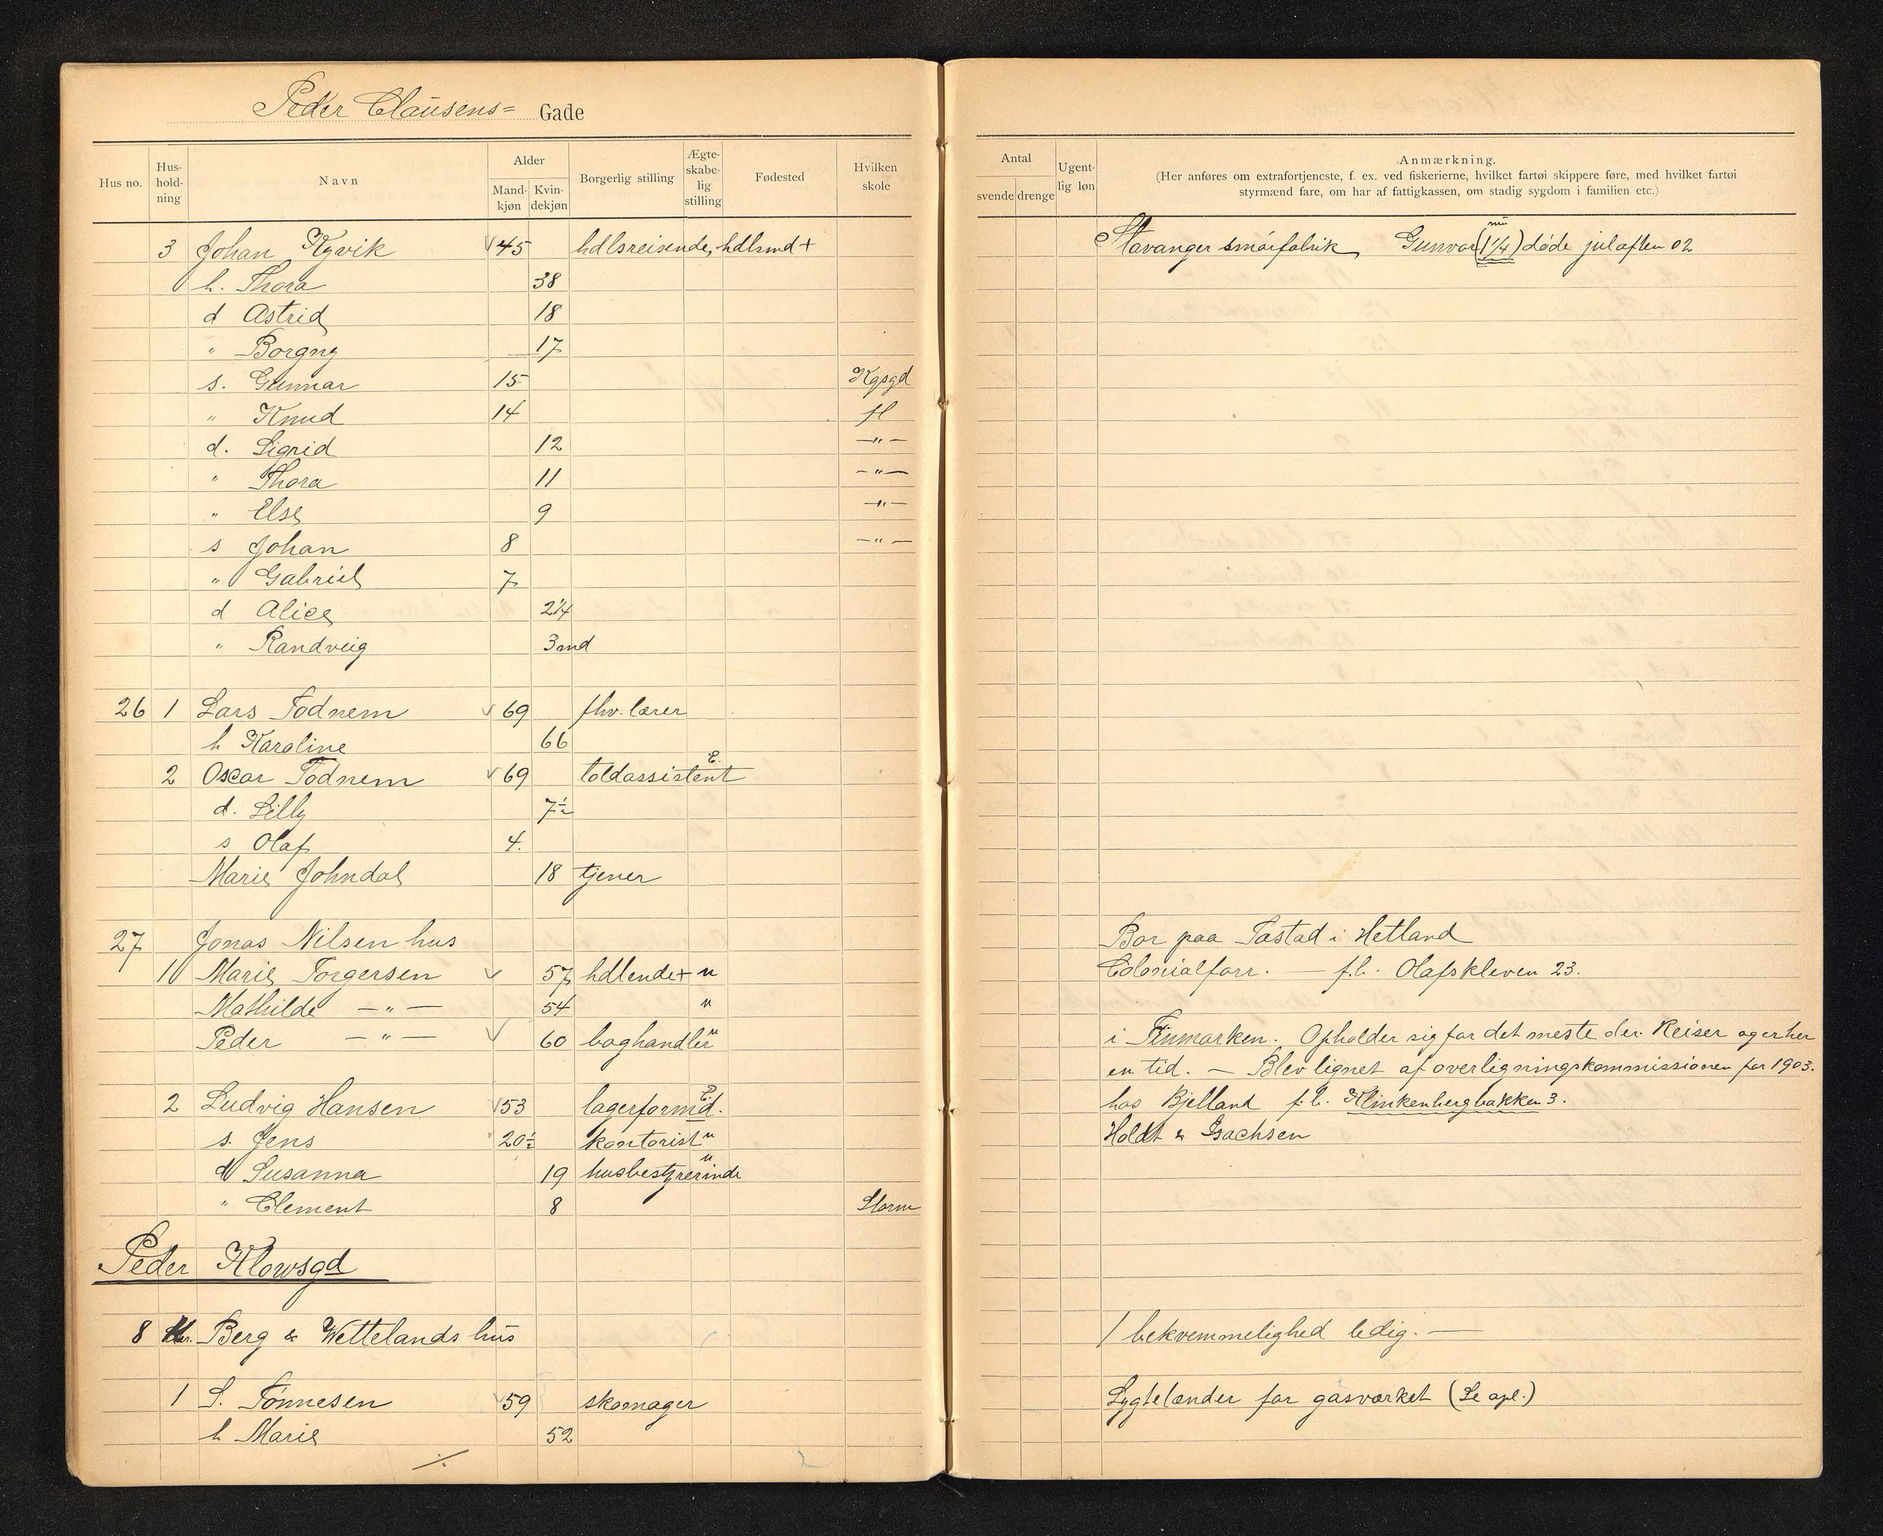 Peder Clausens= Gade
Hus no. Hus-hold-ning Navn Alder Mand-kjøn Kvin-dekjøn Borgerlig stilling Ægte-skabe-lig stilling Fødested Hvilken skole
Antal svende drenge Ugent-lig løn Anmærkning.
(Her anføres om extrafortjeneste, f. ex. ved fiskerierne, hvilket fartøi skippere føre, med hvilket fartøi
styrmænd fare, om har af fattigkassen, om stadig sygdom i familien etc.)
3 Johan Kyvik 45 hdlsreisende, hdlsmd + Stavanger smørfabrik Gunvor (1 1/4) døde julaften 02
h. Thora 38
d Astrid 18
" Borgny 17
s. Gunnar 15 Kgsgd
" Knud 14 H
d. Sigrid 12 —"—
" Thora 11 —"—
" Else 9 —"—
s Johan 8 —"—
" Gabriel 7
d Alice 2 1/4
" Randveig 3 md
26 1 Lars Todnem 69 fhv. lærer
h Karoline 66
2 Oscar Todnem 69 toldassistent E.
d. Lilly 7 1/2
s Olaf 4.
Marie Johndal 18 tjener
27 Jonas Nilsen hus Bor paa Tastad i Hetland
1 Marie Torgersen 57 hdlende + u Colonialforr. — f.b. Olafskleven 23.
Mathilde —"— 54 u
Peder —"— 60 boghandler u i Finmarken. Opholder sig for det meste der. Reiser og er her
en tid. — Blev lignet af overligningskommissionen for 1903.
2 Ludvig Hansen 53 lagerformd. E. hos Bjelland f.b. Klinkenbergbakken 3.
s. Jens 20 1/2 kontorist u Holdt & Isachsen
d Susanna 19 husbestyrerinde u
" Clement 8 Storm
Peder Klowsgd
8 Berg & Wettelands hus 1 bekvemmelighed ledig. —
1 S. Tønnesen 59 skomager Lygtetænder for gasværket (Se opl.)
h Marie 52